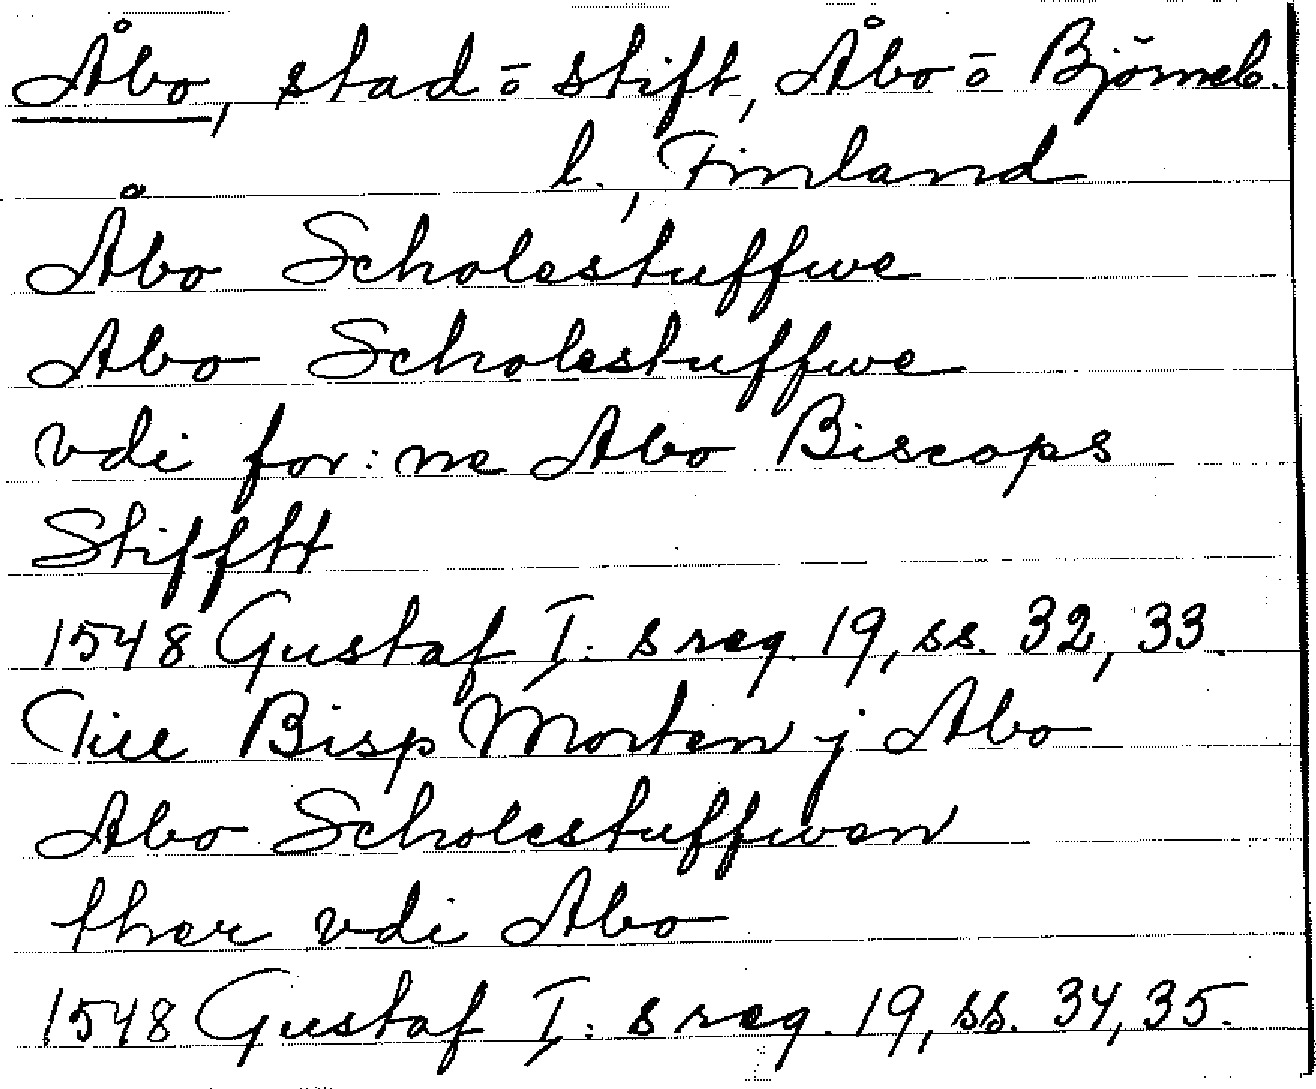 Åbo, stad o stift, Åbo o Björneb.
l., Finland
Åbo Scholestuffwe
Abo Scholestuffwe
vdi for:ne Abo Biscops
Stifftt
1548 Gustaf I:s reg. 19, ss. 32, 33.
Till Bisp Morten j Abo
Abo Scholestuffwen
ther vdi Abo
1548 Gustaf I:s reg. 19, ss. 34, 35.